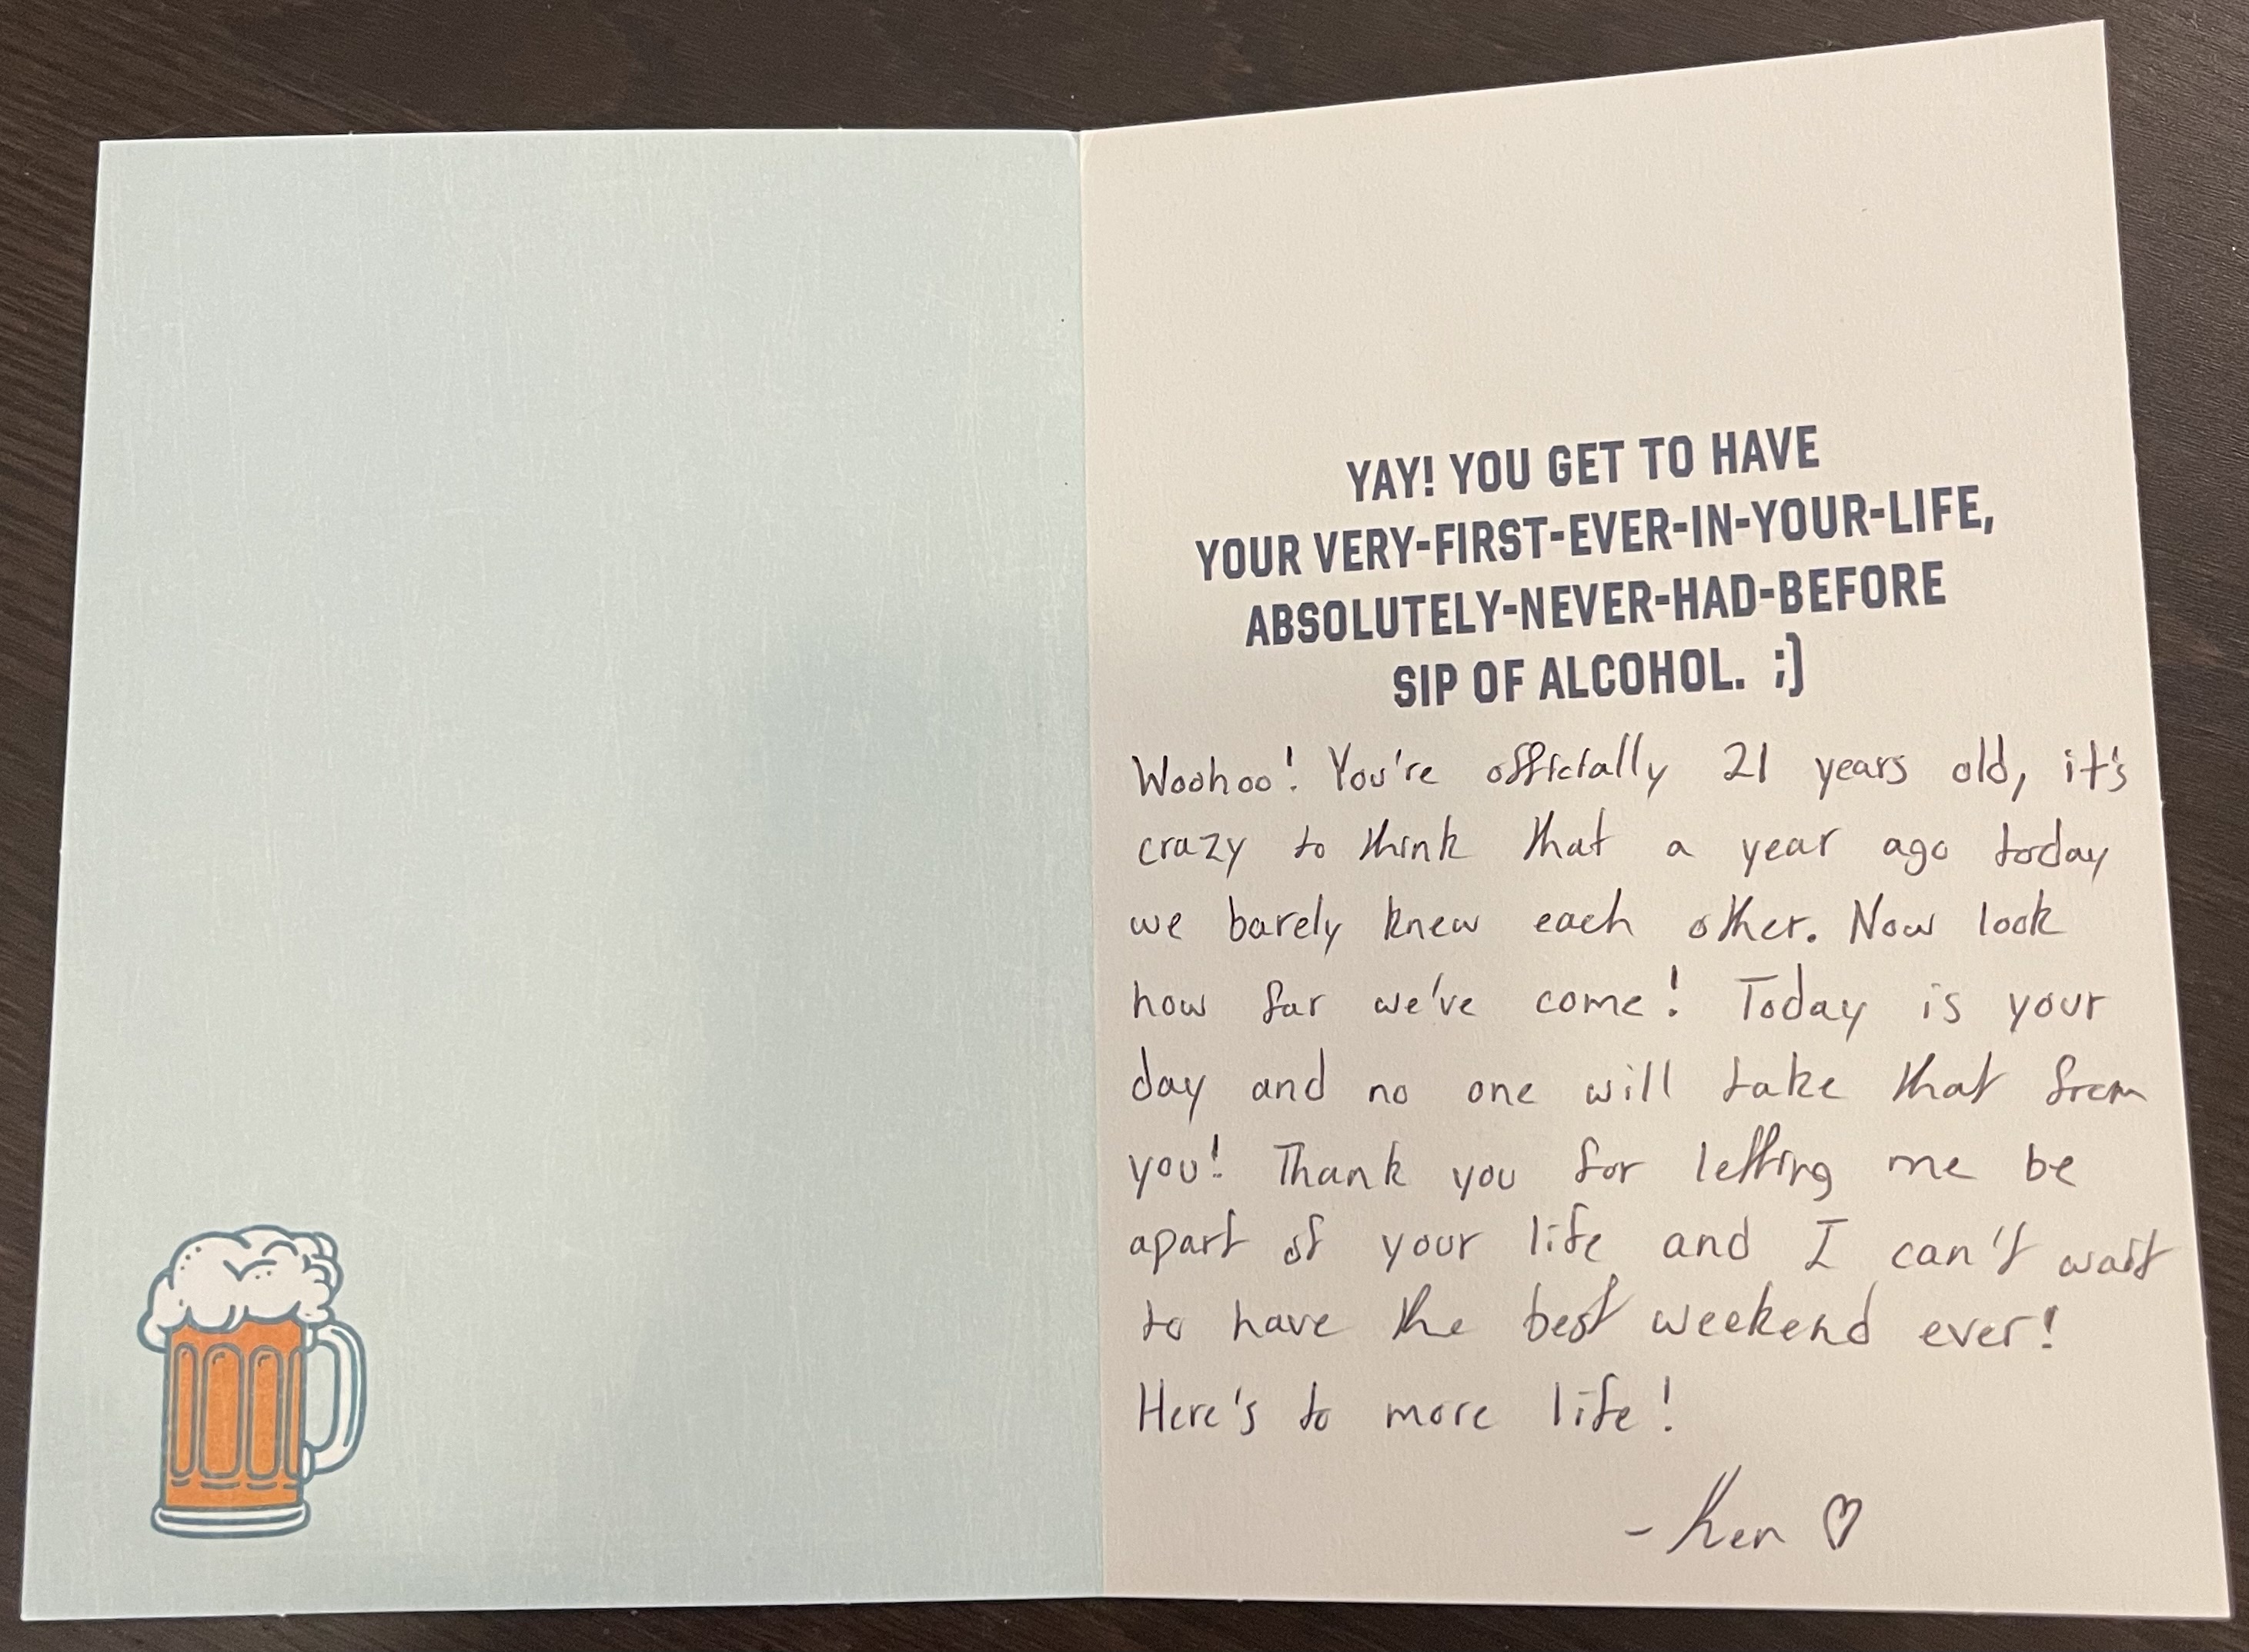 YAY! YOU GET TO HAVE
YOUR VERY-FIRST-EVER-IN-YOUR-LIFE,
ABSOLUTELY-NEVER-HAD-BEFORE
SIP OF ALCOHOL. ;)
Woohoo! You're officially 21 years old, it's
crazy to think that a year ago today
we barely knew each other. Now look
how far we've come! Today is your
day and no one will take that from
you! Thank you for letting me be
apart of your life and I can't wait
to have the best weekend ever!
Here's to more life!
- Ken ♡